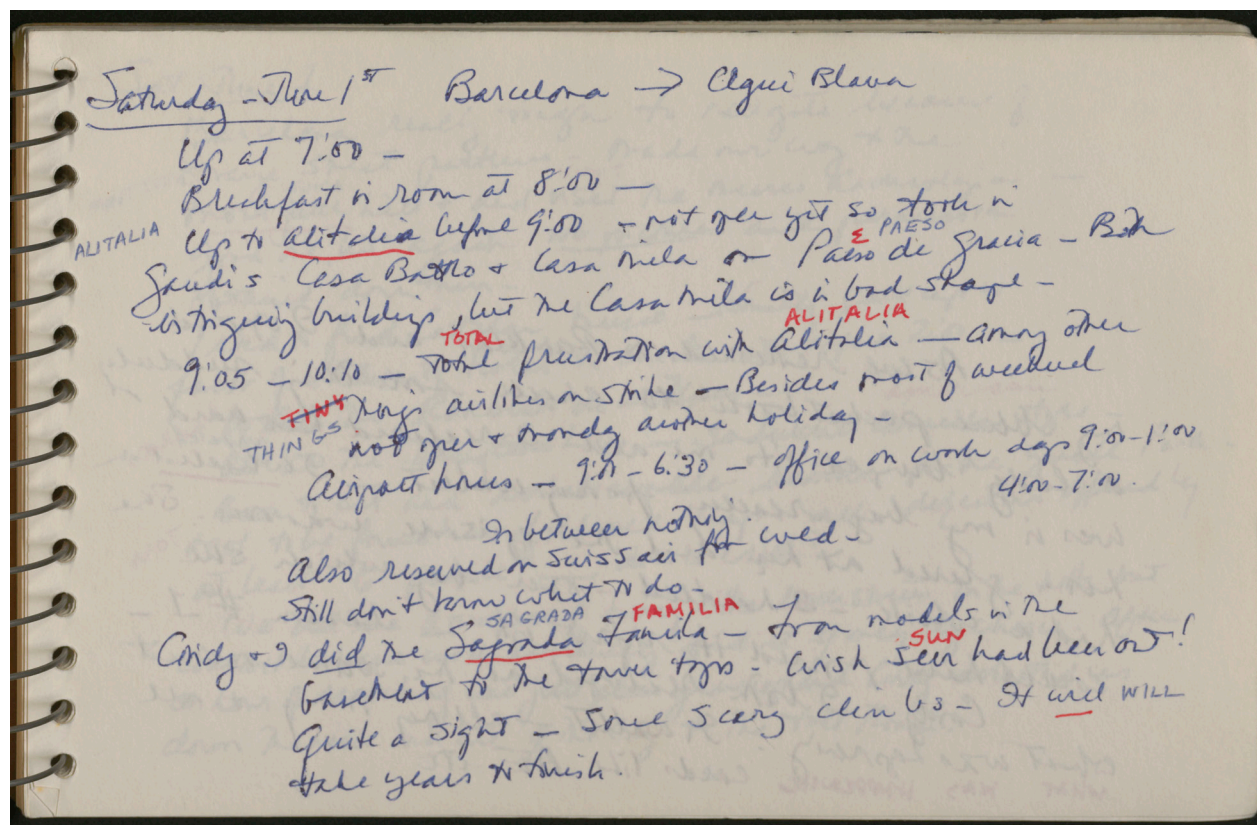 Saturday - June 1ST Barcelona → Aqui Blava
Up at 7:00 -
Breakfast in room at 8:00 -
ALITALIA Up to Alitalia before 9:00 - not open yet so took in
Σ PAESO
Gaudi's Casa Batllo + Casa Mila on Paeso de Gracia - Both
intriguing buildings, but the Casa Mila is in bad shape -
TOTAL ALITALIA
9:05 - 10:10 - Total frustration with Alitalia - among other
TINY THINGS things airlines on strike - Besides most of weekend
not open + Monday another holiday -
Airport hours - 9:00 - 6:30 - office on work days 9:00-1:00
4:00-7:00.
In between nothing.
Also reserved on Swissair for Wed -
Still don't know what to do -
SAGRADA FAMILIA
Cindy + I did the Sagrada Familia - from models in the
SUN
basement to the tower tops - wish sun had been out!
Quite a sight - Some scary climbs - It will WILL
take years to finish.